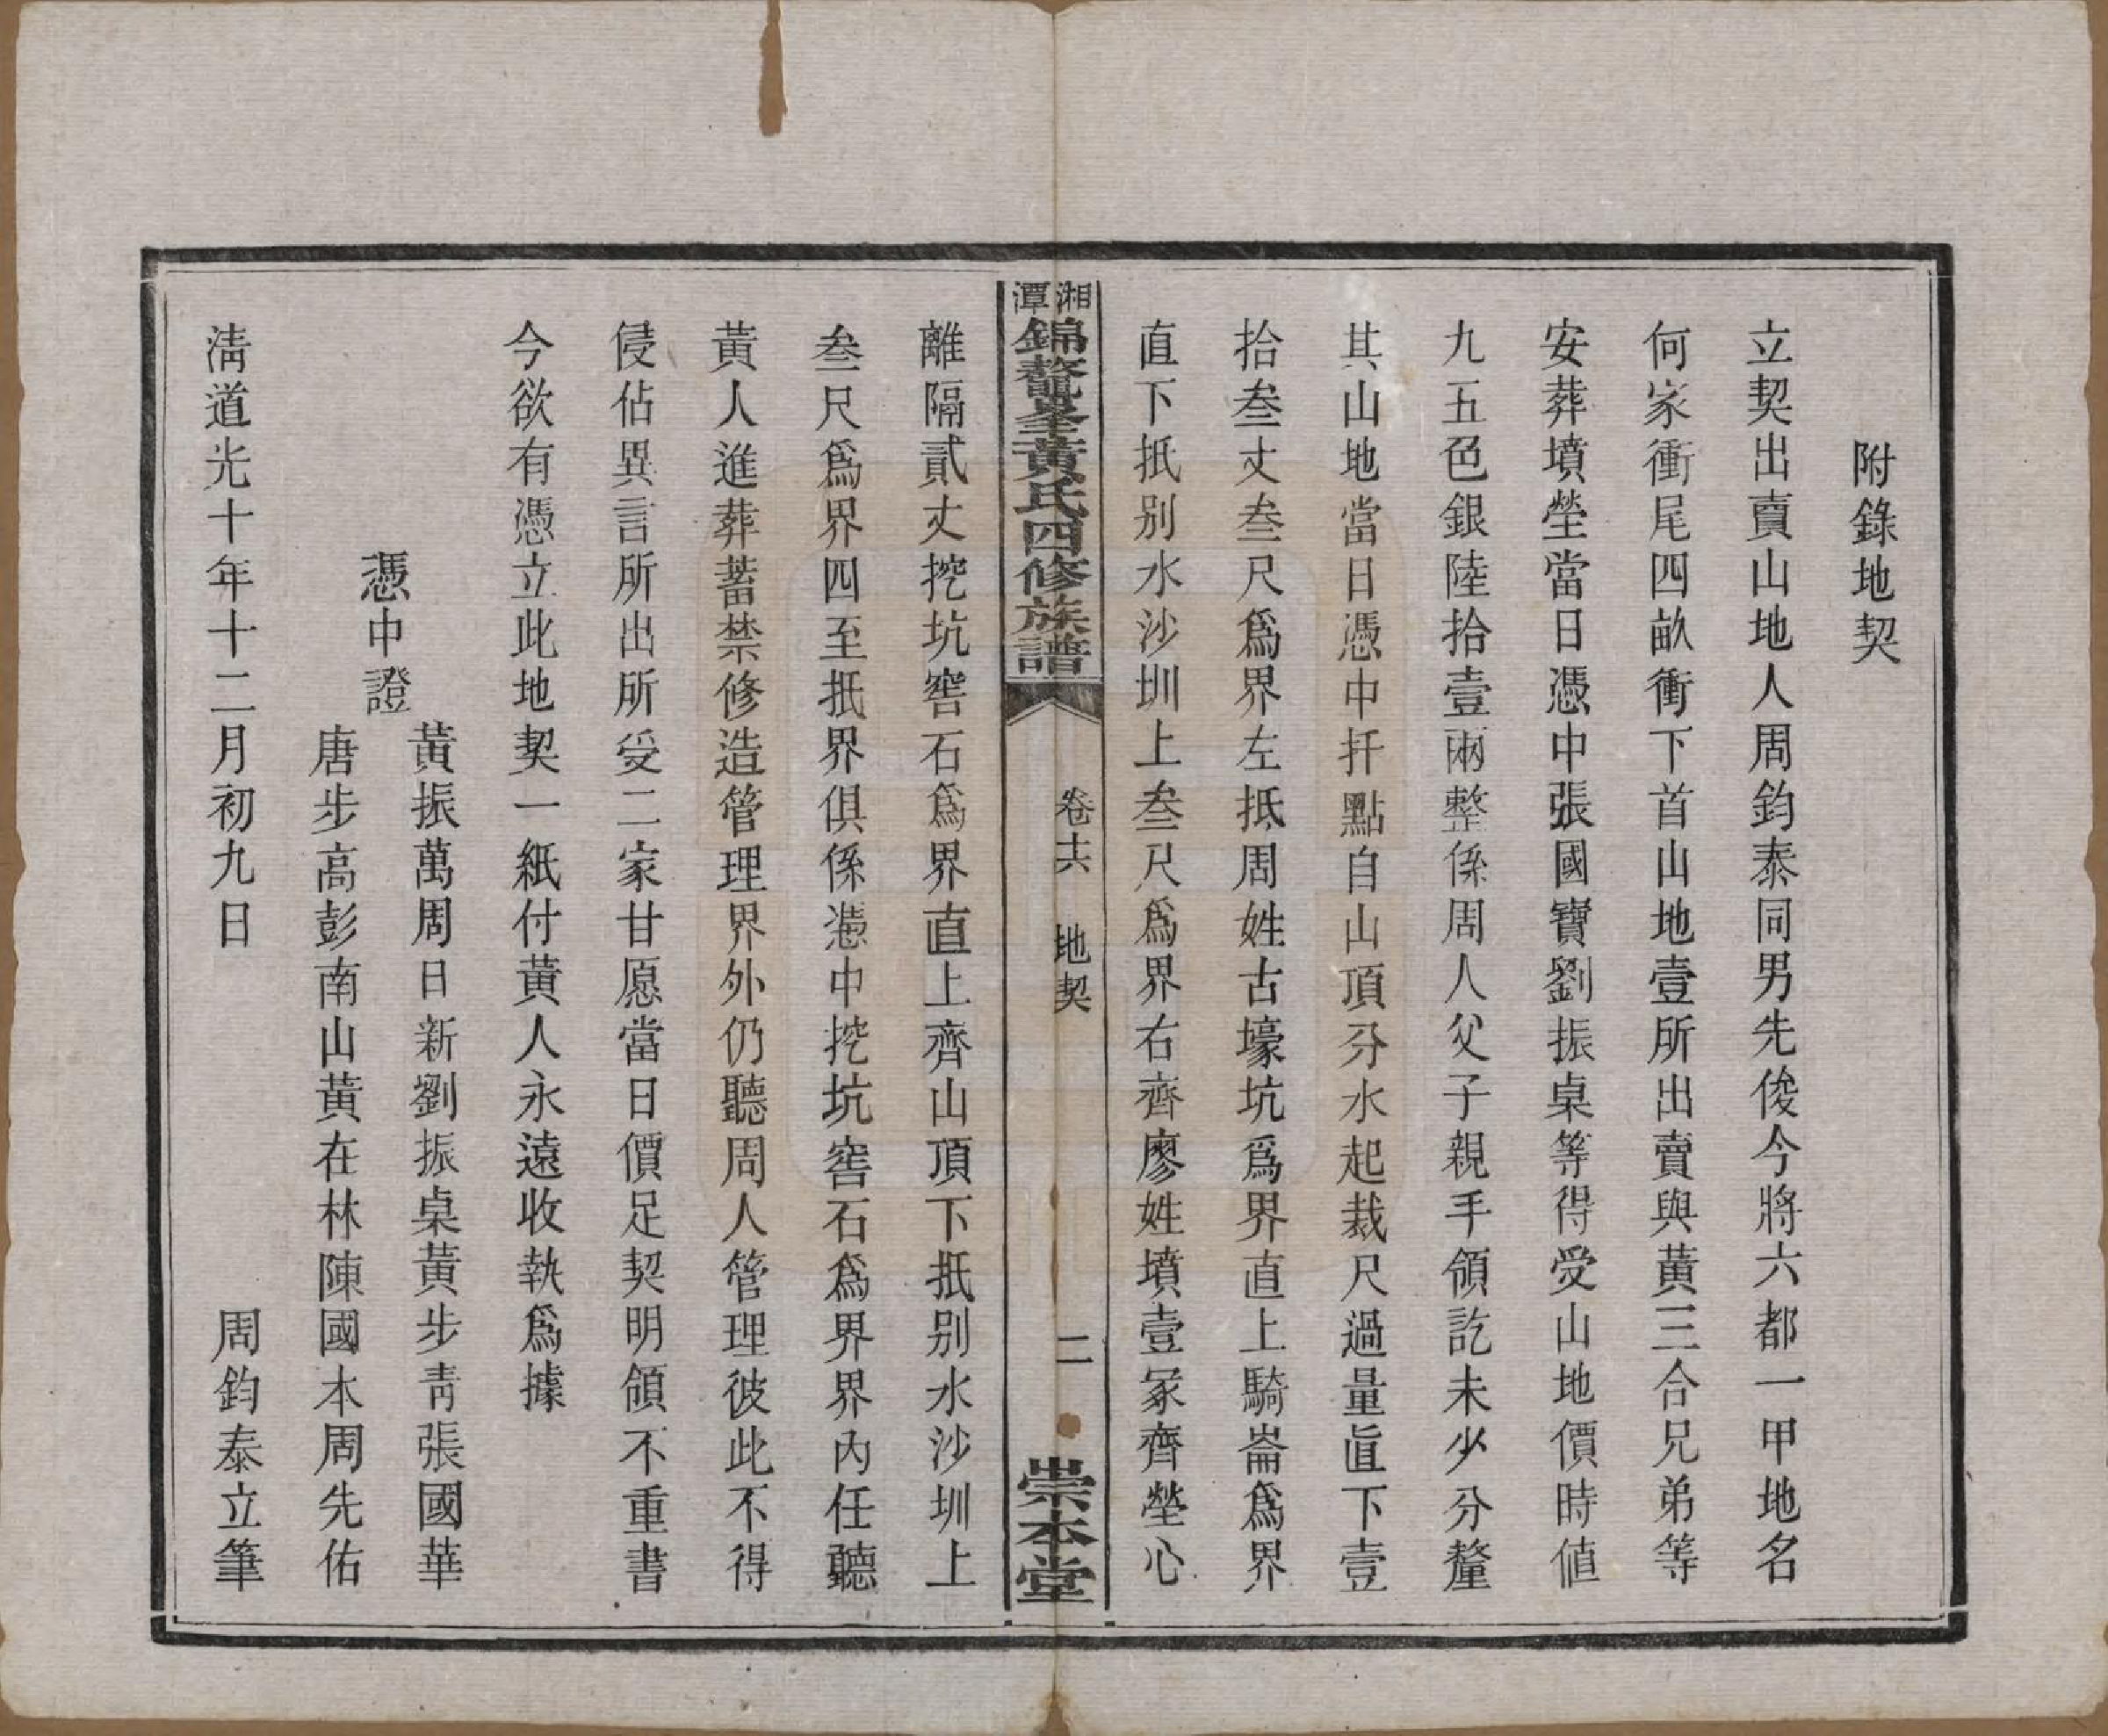 附錄地契
立契出賣山地人周鈞泰同男先俊今將六都一甲地名
何家衝尾四畝衝下首山地壹所出賣與黃三合兄弟等
安葬墳塋當日憑中張國寶劉振桌等得受山地價時値
九五色銀陸拾壹兩整係周人父子親手領訖未少分釐
其山地當日憑中扦點自山頂分水起裁尺過量直下壹
拾叁丈叁尺爲界左抵周姓古壕坑爲界直上騎崙爲界
直下抵别水沙圳上叁尺爲界右齊廖姓墳壹冡齊塋心
湘潭錦鰲峯黃氏四修族譜 卷十六 地契 二 崇本堂
離隔貳丈挖坑窖石爲界直上齊山頂下抵别水沙圳上
叁尺爲界四至抵界俱係憑中挖坑窖石爲界界內任聽
黃人進葬蓄禁修造管理界外仍聽周人管理彼此不得
侵佔異言所出所受二家甘愿當日價足契明領不重書
今欲有憑立此地契一紙付黃人永遠收執爲據
憑中證
黃振萬周日新劉振桌黃步青張國華
唐步高彭南山黃在林陳國本周先佑
淸道光十年十二月初九日 周鈞泰立筆